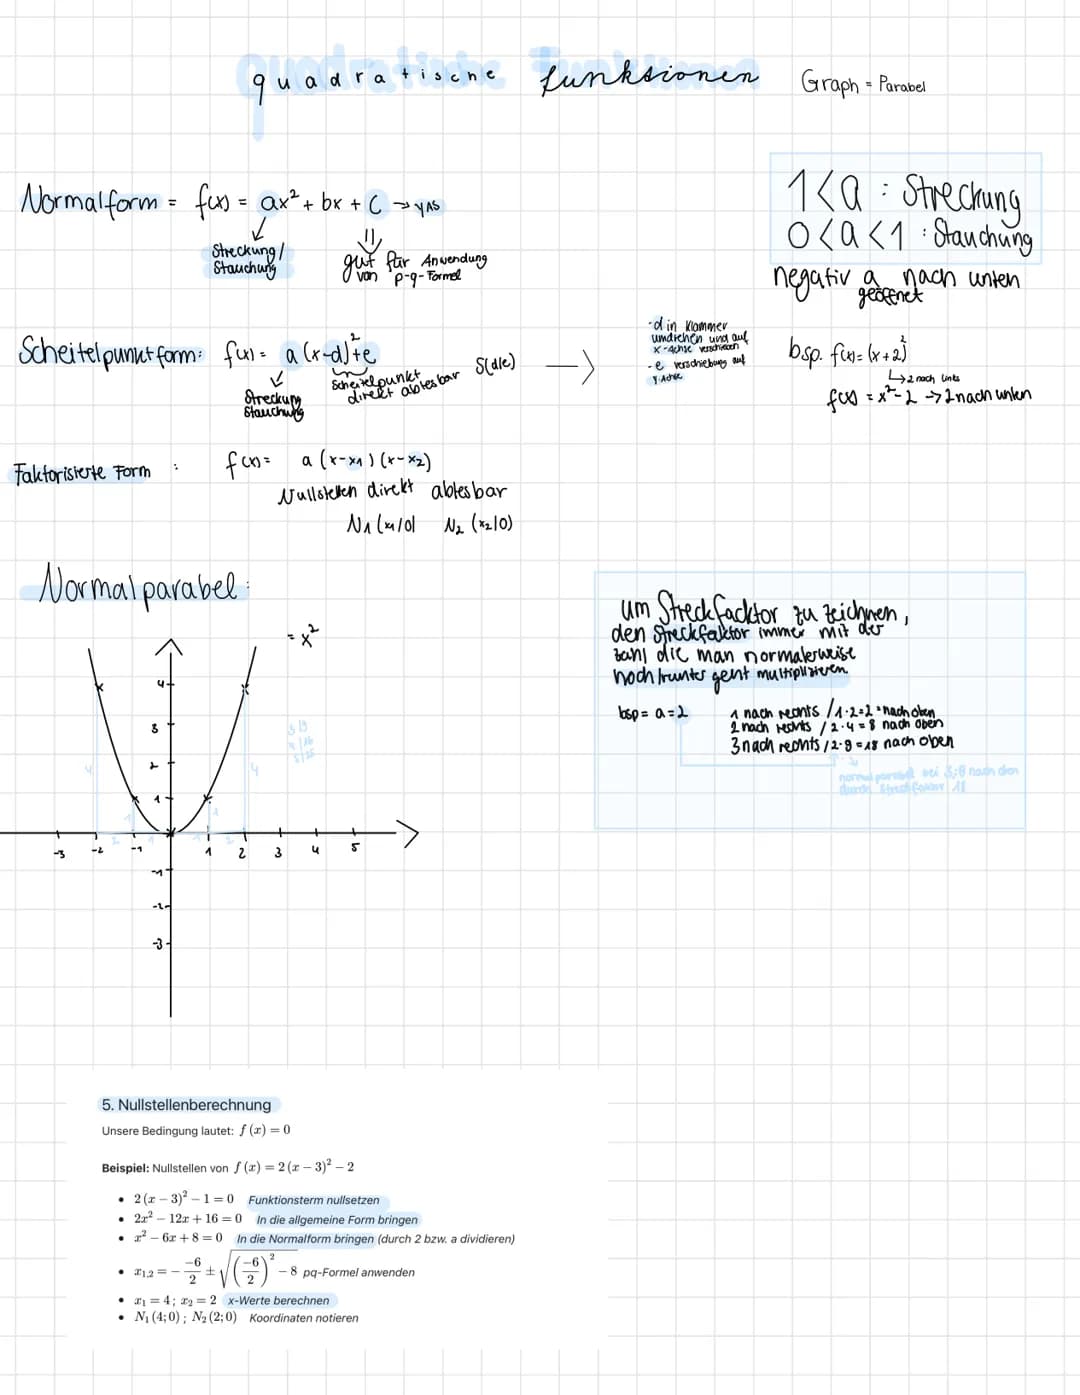 quadratische Funktionen Graph = Parabel
Normalform = f(x) = ax² + bx + C → yAS
Streckung/
Stauchung
gut für Anwendung
von p-q-Formel
1<a : Streckung
0<a<1 : Stauchung
negativ a nach unten
geöffnet
Scheitelpunktform: f(x) = a(x-d)²+e
Streckung
Stauchung
Scheitelpunkt
direkt ablesbar S(d/e)
-d in Klammer
umdrehen und auf
x-Achse verschieben
-e verschiebung auf
y-Achse
bsp. f(x)=(x+2)²
↳2 nach links
f(x) = x²-2 → 2 nach unten
Faktorisierte Form : f(x) = a (x-x1) (x-x2)
Nullstellen direkt ablesbar
N1 (x1/0) N2 (x2/0)
Normalparabel:
= x²
4
3
2
1
-3 -2 -1 1 2 3 4 5
-1
-2
-3
3/9
4/16
5/25
4
4
1
1
2
1
1
2
um Streckfacktor zu zeichnen,
den Streckfaktor immer mit der
zahl die man normalerweise
hoch/runter geht multiplizieren
bsp = a=2
1 nach rechts /1·2=2 nach oben
2 nach rechts /2·4=8 nach oben
3 nach rechts /2·9=18 nach oben
normalparabel bei 3;9 nach oben
durch Streckfaktor 18
5. Nullstellenberechnung
Unsere Bedingung lautet: f (x) = 0
Beispiel: Nullstellen von f (x) = 2 (x − 3)² − 2
• 2 (x − 3)² − 1 = 0 Funktionsterm nullsetzen
• 2x² − 12x + 16 = 0 In die allgemeine Form bringen
• x² − 6x + 8 = 0 In die Normalform bringen (durch 2 bzw. a dividieren)
• x1,2 = − −6/2 ± √((−6/2)² − 8) pq-Formel anwenden
• x1 = 4; x2 = 2 x-Werte berechnen
• N1 (4; 0) ; N2 (2; 0) Koordinaten notieren